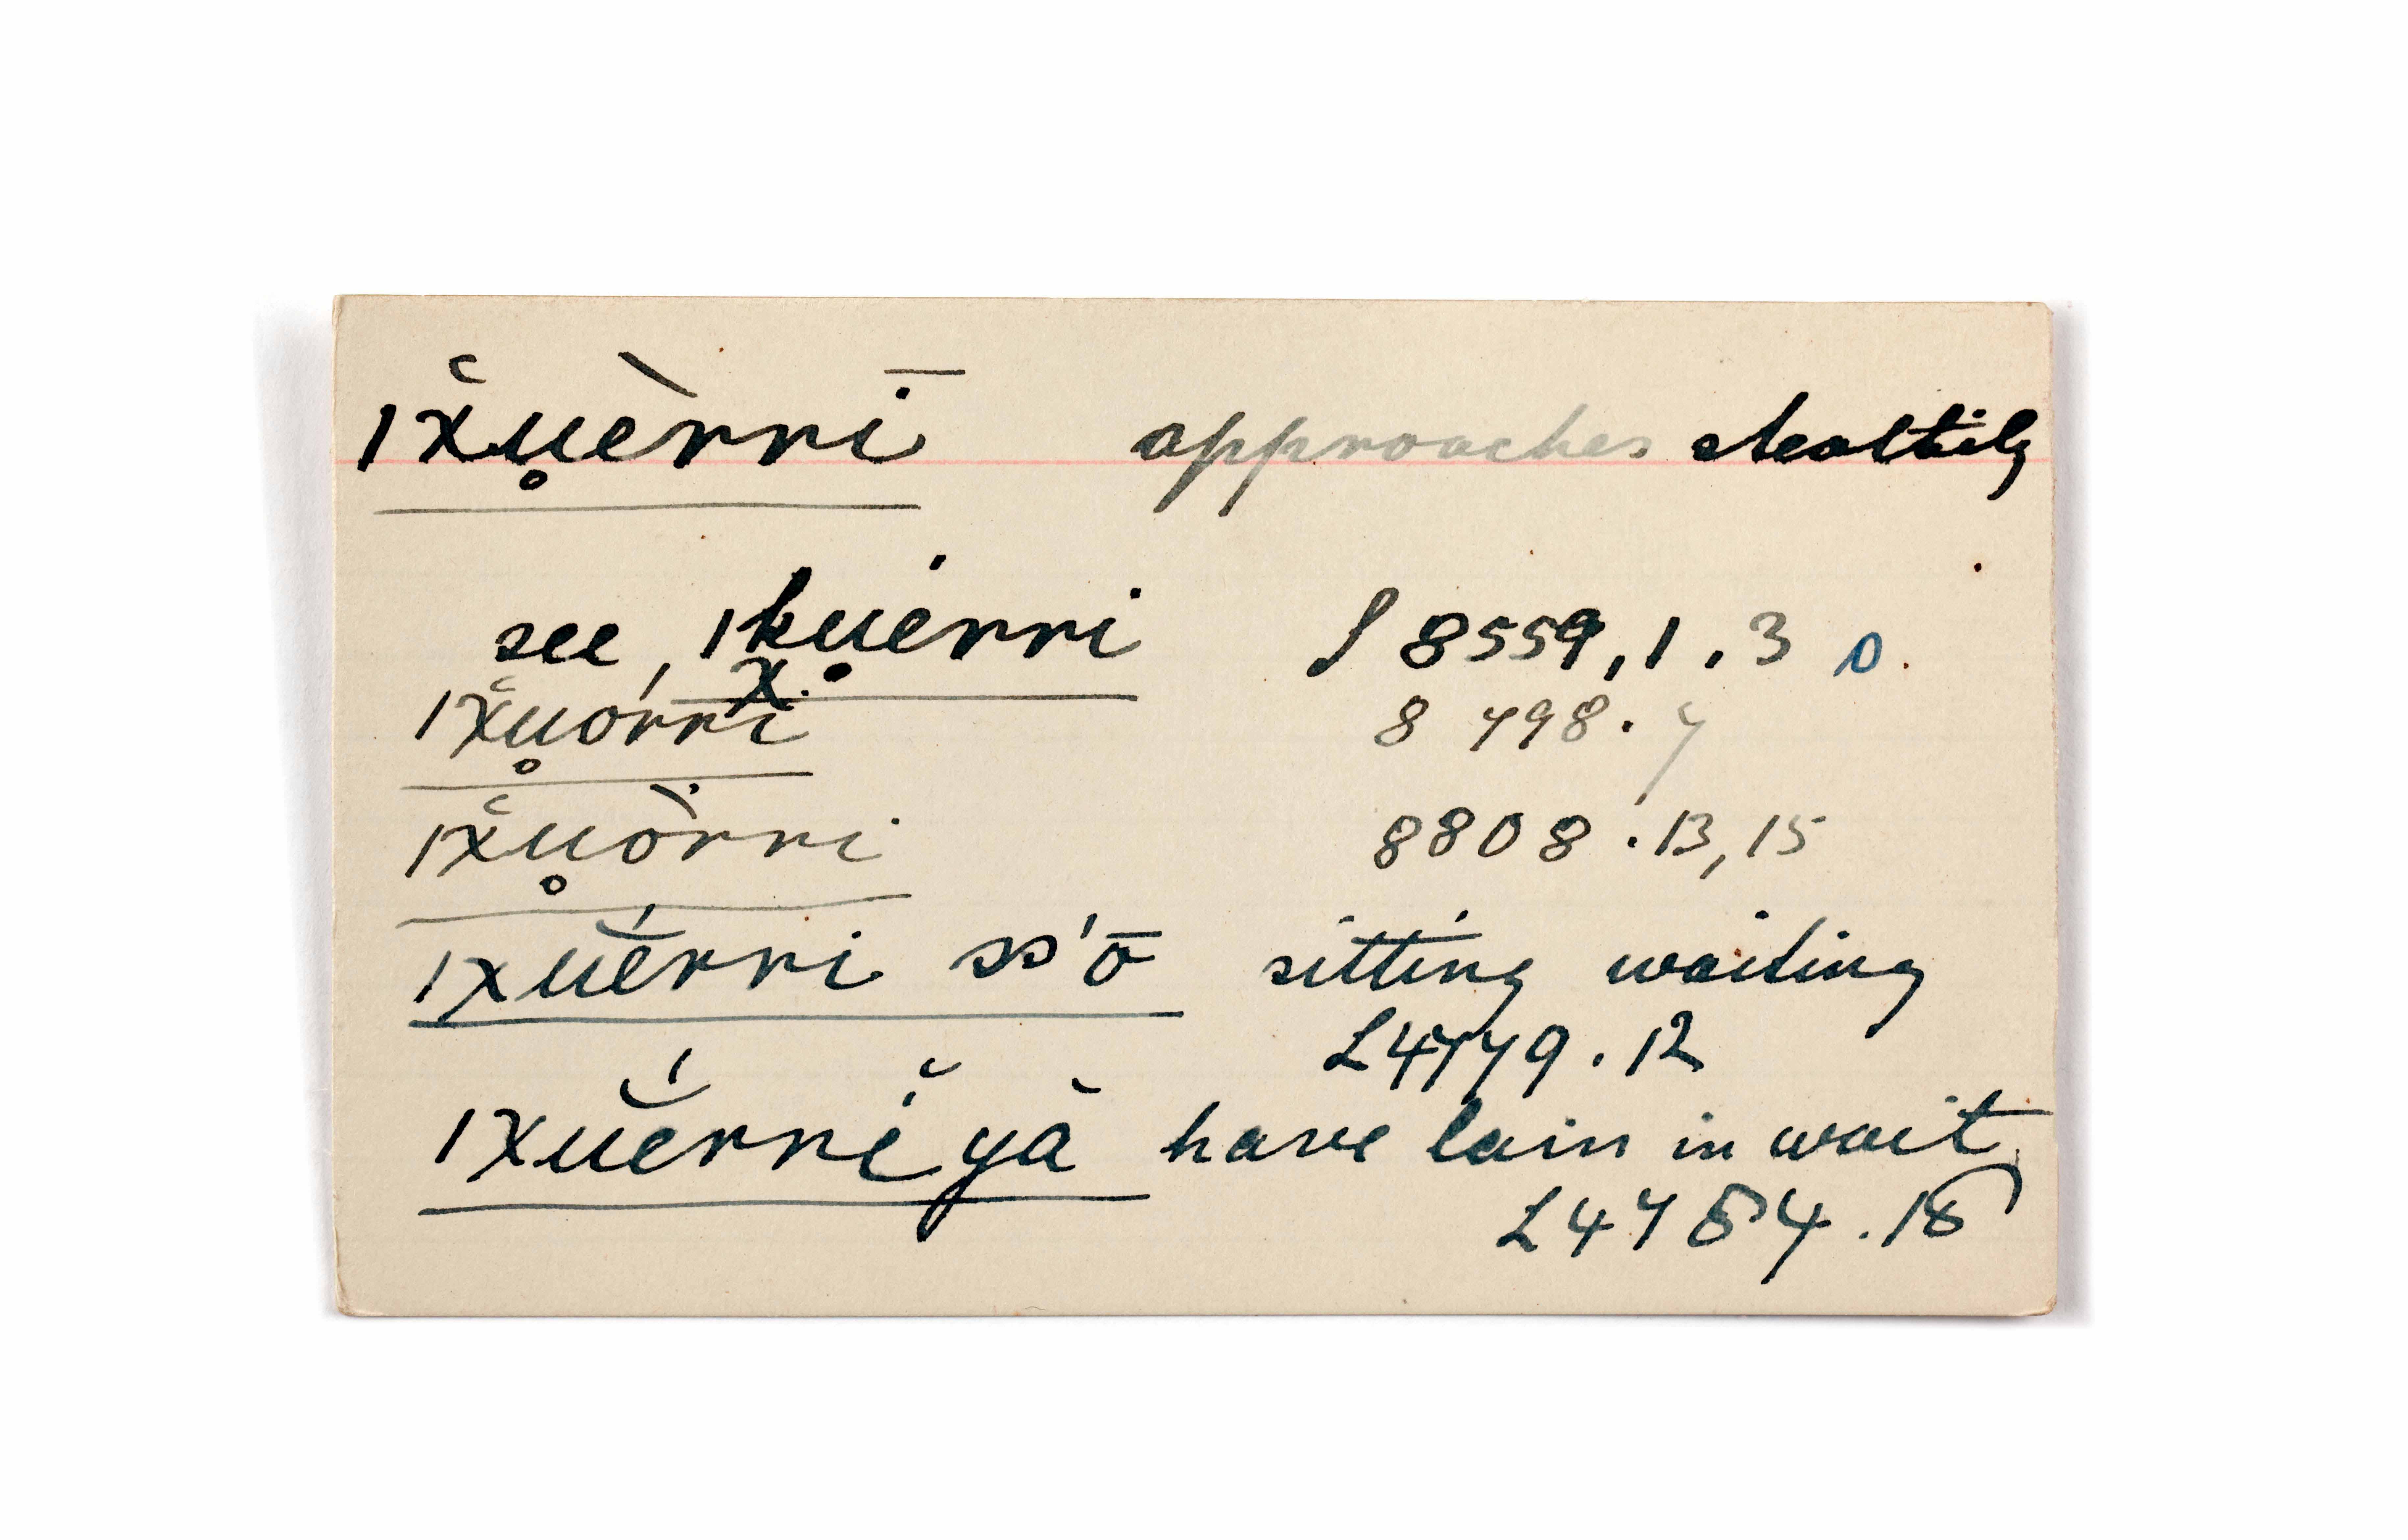 ǀx̆u̥èrrī approaches stealthily
see, ǀku̥érri ʃ 8559, 1. 3 D.
x.
ǀx̆u̥órri 8498. 7
ǀx̆u̥òrri 8808. 13, 15
ǀxuĕ́rri ss'ō sitting waiting
L 4779. 12
ǀxuĕ́rrĭ yă have lain in wait